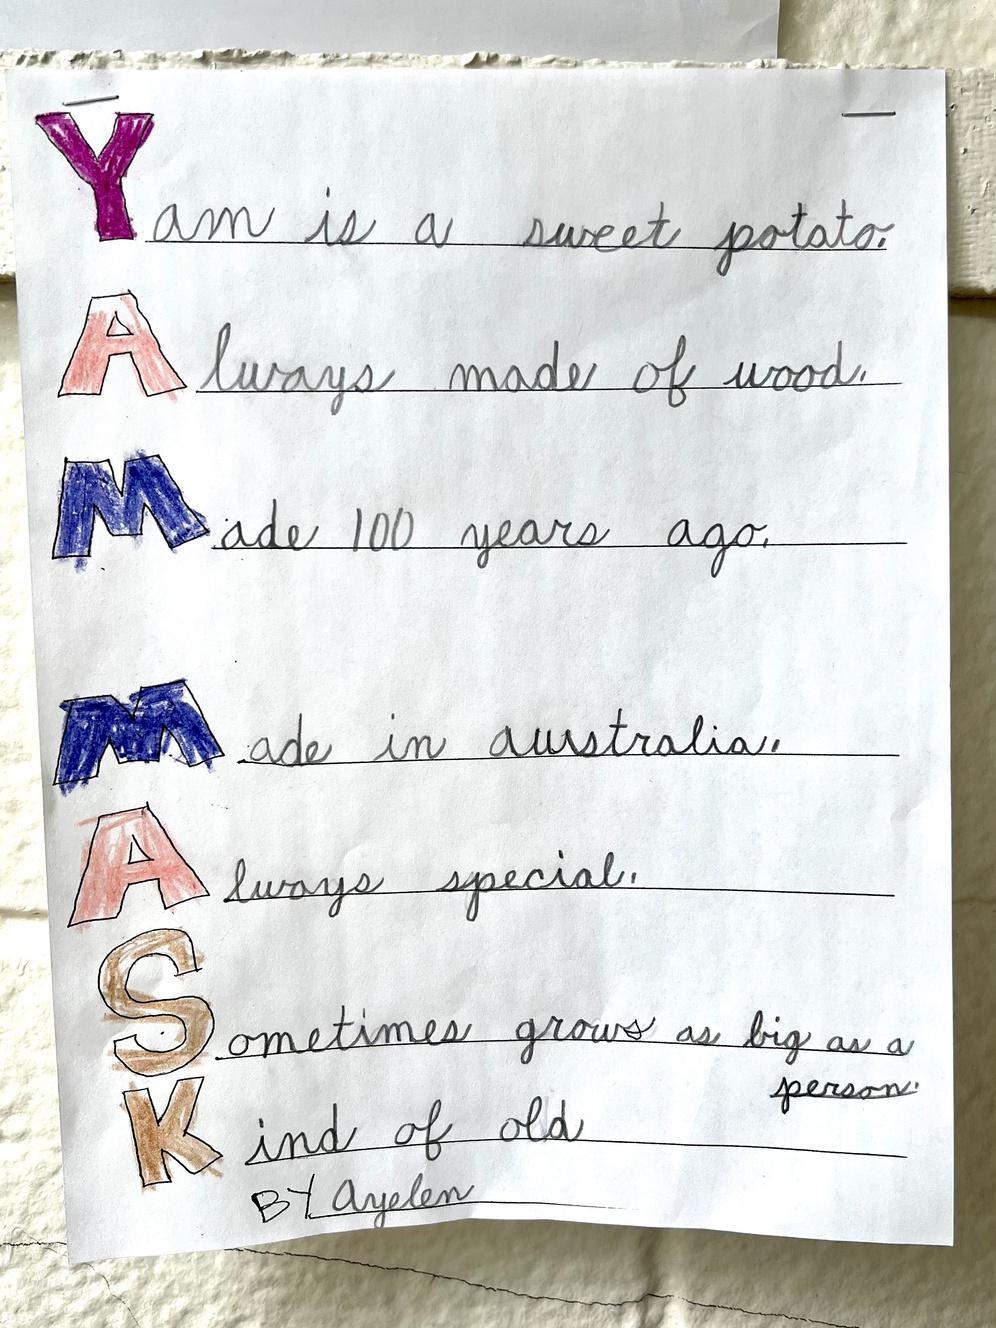 Yam is a sweet potato.
Always made of wood.
Made 100 years ago.
Made in australia.
Always special.
Sometimes grows as big as a
person.
Kind of old
BY Ayelen